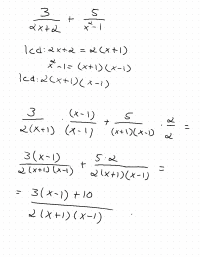 3/(2x+2) + 5/(x²-1)
lcd: 2x+2 = 2(x+1)
x²-1 = (x+1)(x-1)
lcd: 2(x+1)(x-1)
3/(2(x+1)) · (x-1)/(x-1) + 5/((x+1)(x-1)) · 2/2 =
3(x-1)/(2(x+1)(x-1)) + 5·2/(2(x+1)(x-1)) =
= (3(x-1)+10)/(2(x+1)(x-1))